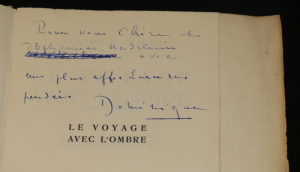 Pour vous Chère et
avec
mes plus affectueuses
pensées
Dominique
LE VOYAGE
AVEC L'OMBRE